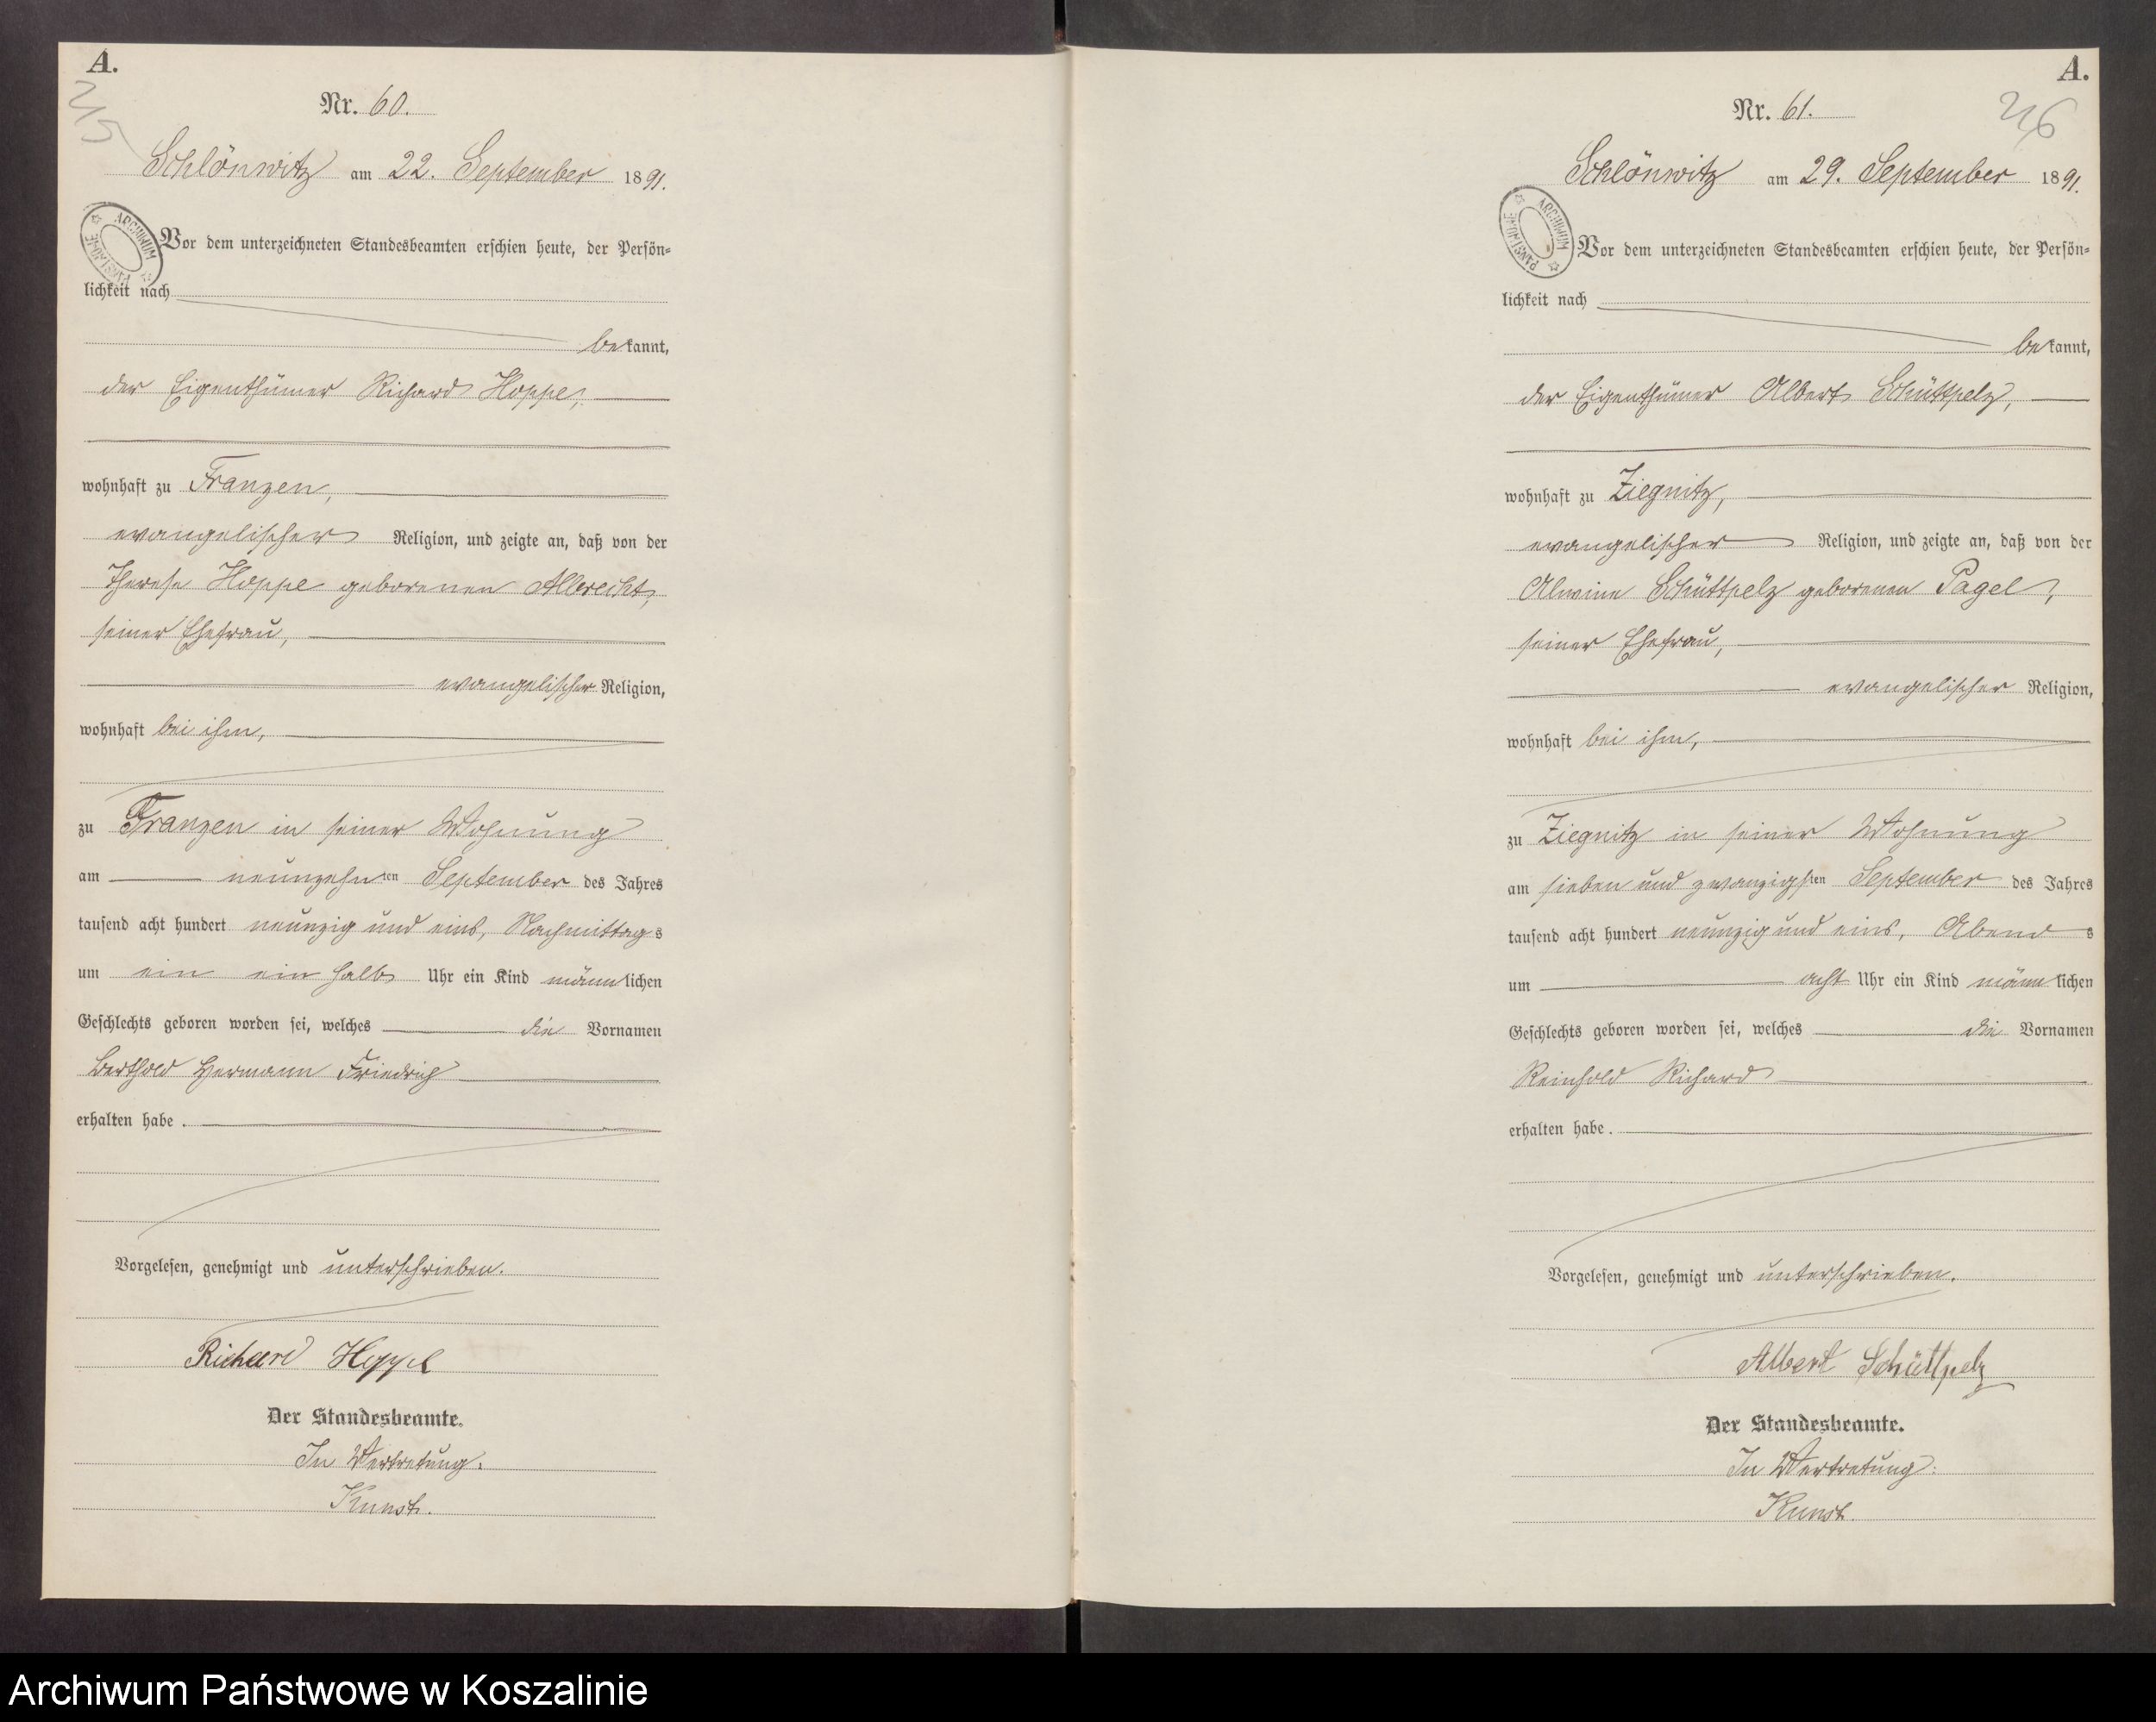 A.
215
Nr. 60.
Schlönwitz am 22. September 1891.
ARCHIWUM PAŃSTWOWE
Vor dem unterzeichneten Standesbeamten erschien heute, der Persön=
lichkeit nach
bekannt,
der Eigenthümer Richard Hoppe,
wohnhaft zu Franzen,
evangelischer Religion, und zeigte an, daß von der
Therese Hoppe geborenen Albrecht,
seiner Ehefrau,
evangelischer Religion,
wohnhaft bei ihm,
zu Franzen in seiner Wohnung
am neunzehnten September des Jahres
tausend acht hundert neunzig und eins, Nachmittags
um ein ein halb Uhr ein Kind männlichen
Geschlechts geboren worden sei, welches die Vornamen
Berthold Hermann Friedrich
erhalten habe.
Vorgelesen, genehmigt und unterschrieben.
Richard Hoppe
Der Standesbeamte.
In Vertretung:
Kunst.
A.
216
Nr. 61.
Schlönwitz am 29. September 1891.
ARCHIWUM PAŃSTWOWE
Vor dem unterzeichneten Standesbeamten erschien heute, der Persön=
lichkeit nach
bekannt,
der Eigenthümer Albert Schüttpelz,
wohnhaft zu Ziegnitz,
evangelischer Religion, und zeigte an, daß von der
Alwine Schüttpelz geborenen Pagel,
seiner Ehefrau,
evangelischer Religion,
wohnhaft bei ihm,
zu Ziegnitz in seiner Wohnung
am sieben und zwanzigsten September des Jahres
tausend acht hundert neunzig und eins, Abends
um acht Uhr ein Kind männlichen
Geschlechts geboren worden sei, welches die Vornamen
Reinhold Richard
erhalten habe.
Vorgelesen, genehmigt und unterschrieben.
Albert Schüttpelz
Der Standesbeamte.
In Vertretung:
Kunst.
Archiwum Państwowe w Koszalinie